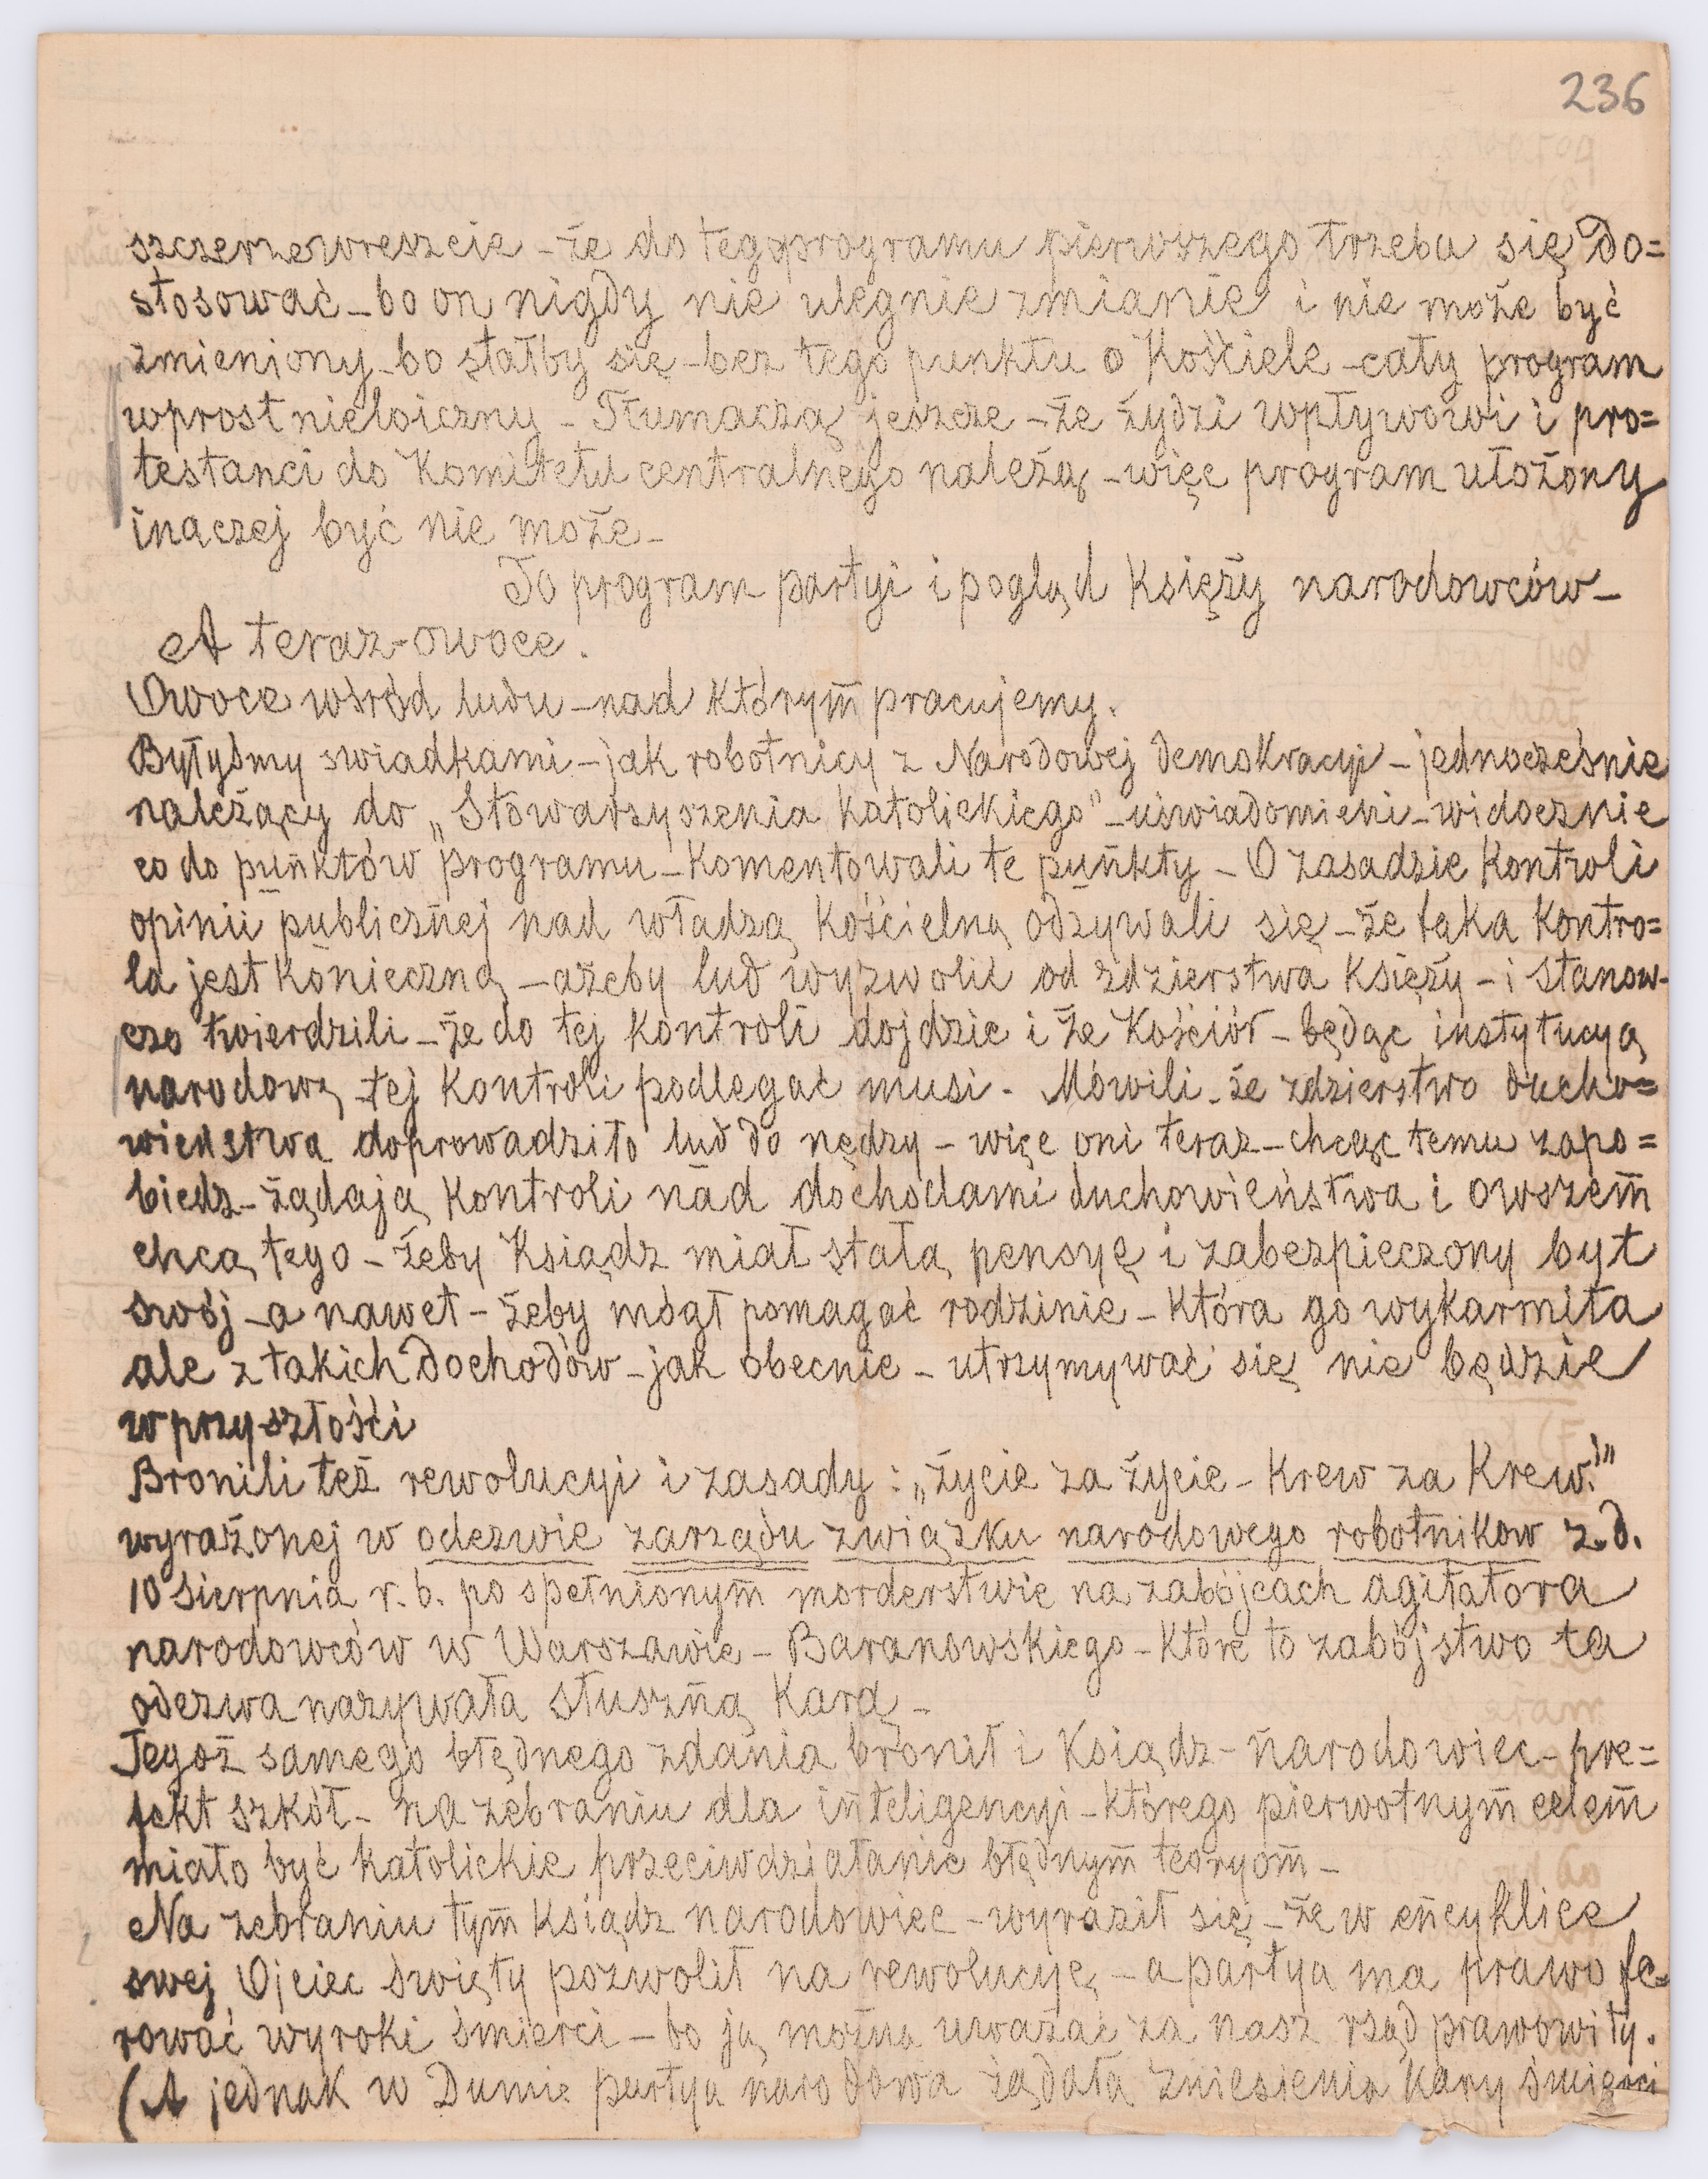 236
szczerze wreszcie – że do tego programu pierwszego trzeba się do=
stosować – bo on nigdy nie ulegnie zmianie i nie może być
zmieniony – bo stałby się – bez tego punktu o Kościele – cały program
wprost nieloiczny – Tłumaczą jeszcze – że żydzi wpływowi i pro=
testanci do Komitetu centralnego należą – więc program ułożony
inaczej być nie może –
To program partyi i pogląd Księży narodowców –
A teraz – owoce.
Owoce wśród ludu – nad którym̄ pracujemy.
Byłyśmy swiadkami – jak robotnicy z Narodowej demokracyi – jednocześnie
należący do „Stowarzyszenia Katolickiego" – uświadomieni – widocznie
co do puñktów programu – Komentowali te puñkty – O zasadzie Kontroli
opinii publiczñej nad władzą Kościelną odzywali się – że taka Kontro=
la jest Konieczną – ażeby lud wyzwolić od zdzierstwa Księży – i stanow-
czo twierdzili – że do tej Kontroli dojdzie i że Kościół – będąc instytucyą
narodową – tej Kontroli podlegać musi. Mówili – że zdzierstwo ducho=
wieństwa doprowadziło lud do nędzy – więc oni teraz – chcąc temu zapo=
biedz – żądają Kontroli nad dochodami duchowieństwa i owszem̄
chcą tego – żeby Ksiądz miał stałą pensyę i zabezpieczony byt
swój – a nawet – żeby mógł pomagać rodzinie – Która go wykarmiła
ale z takich dochodów – jak obecnie – utrzymywać się nie będzie
w przyszłości
Bronili też rewolucyi i zasady: „życie za życie – Krew za Krew!"
wyrażonej w odezwie zarządu związku narodowego robotnikow z d.
10 sierpnia r. b. po spełnionym̄ morderstwie na zabójcach agitatora
narodowców w Warszawie – Baranowskiego – Które to zabójstwo ta
odezwa nazywała słuszñą Karą –
Tegoż samego błędnego zdania bronił i Ksiądz – ñarodowiec – pre=
fekt szkół – na zebraniu dla iñteligencyi – którego pierwotnym̄ celem̄
miało być katolickie przeciwdziałanie błędnym̄ teoryom̄ –
Na zebraniu tym̄ Ksiądz narodowiec – wyraził się – że w eñcyklice
swej Ojciec święty pozwolił na rewolucyję – a partya ma prawo fe=
rować wyroki śmierci – bo ją można uważać za nasz rząd prawowity.
(A jednak w Dumie partya narodowa żądała zniesienia Kary śmierci